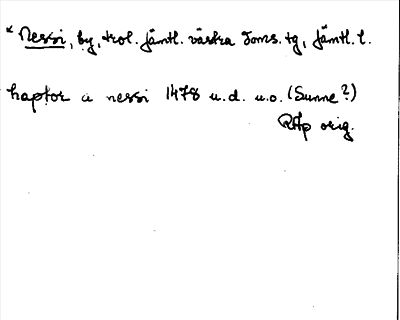 * Nessi, by, trol. Jämtl. västra Doms. tg, Jämtl. l.
haptor a nessi 1478 u.d. u.o. (Sunne?)
RAp orig.